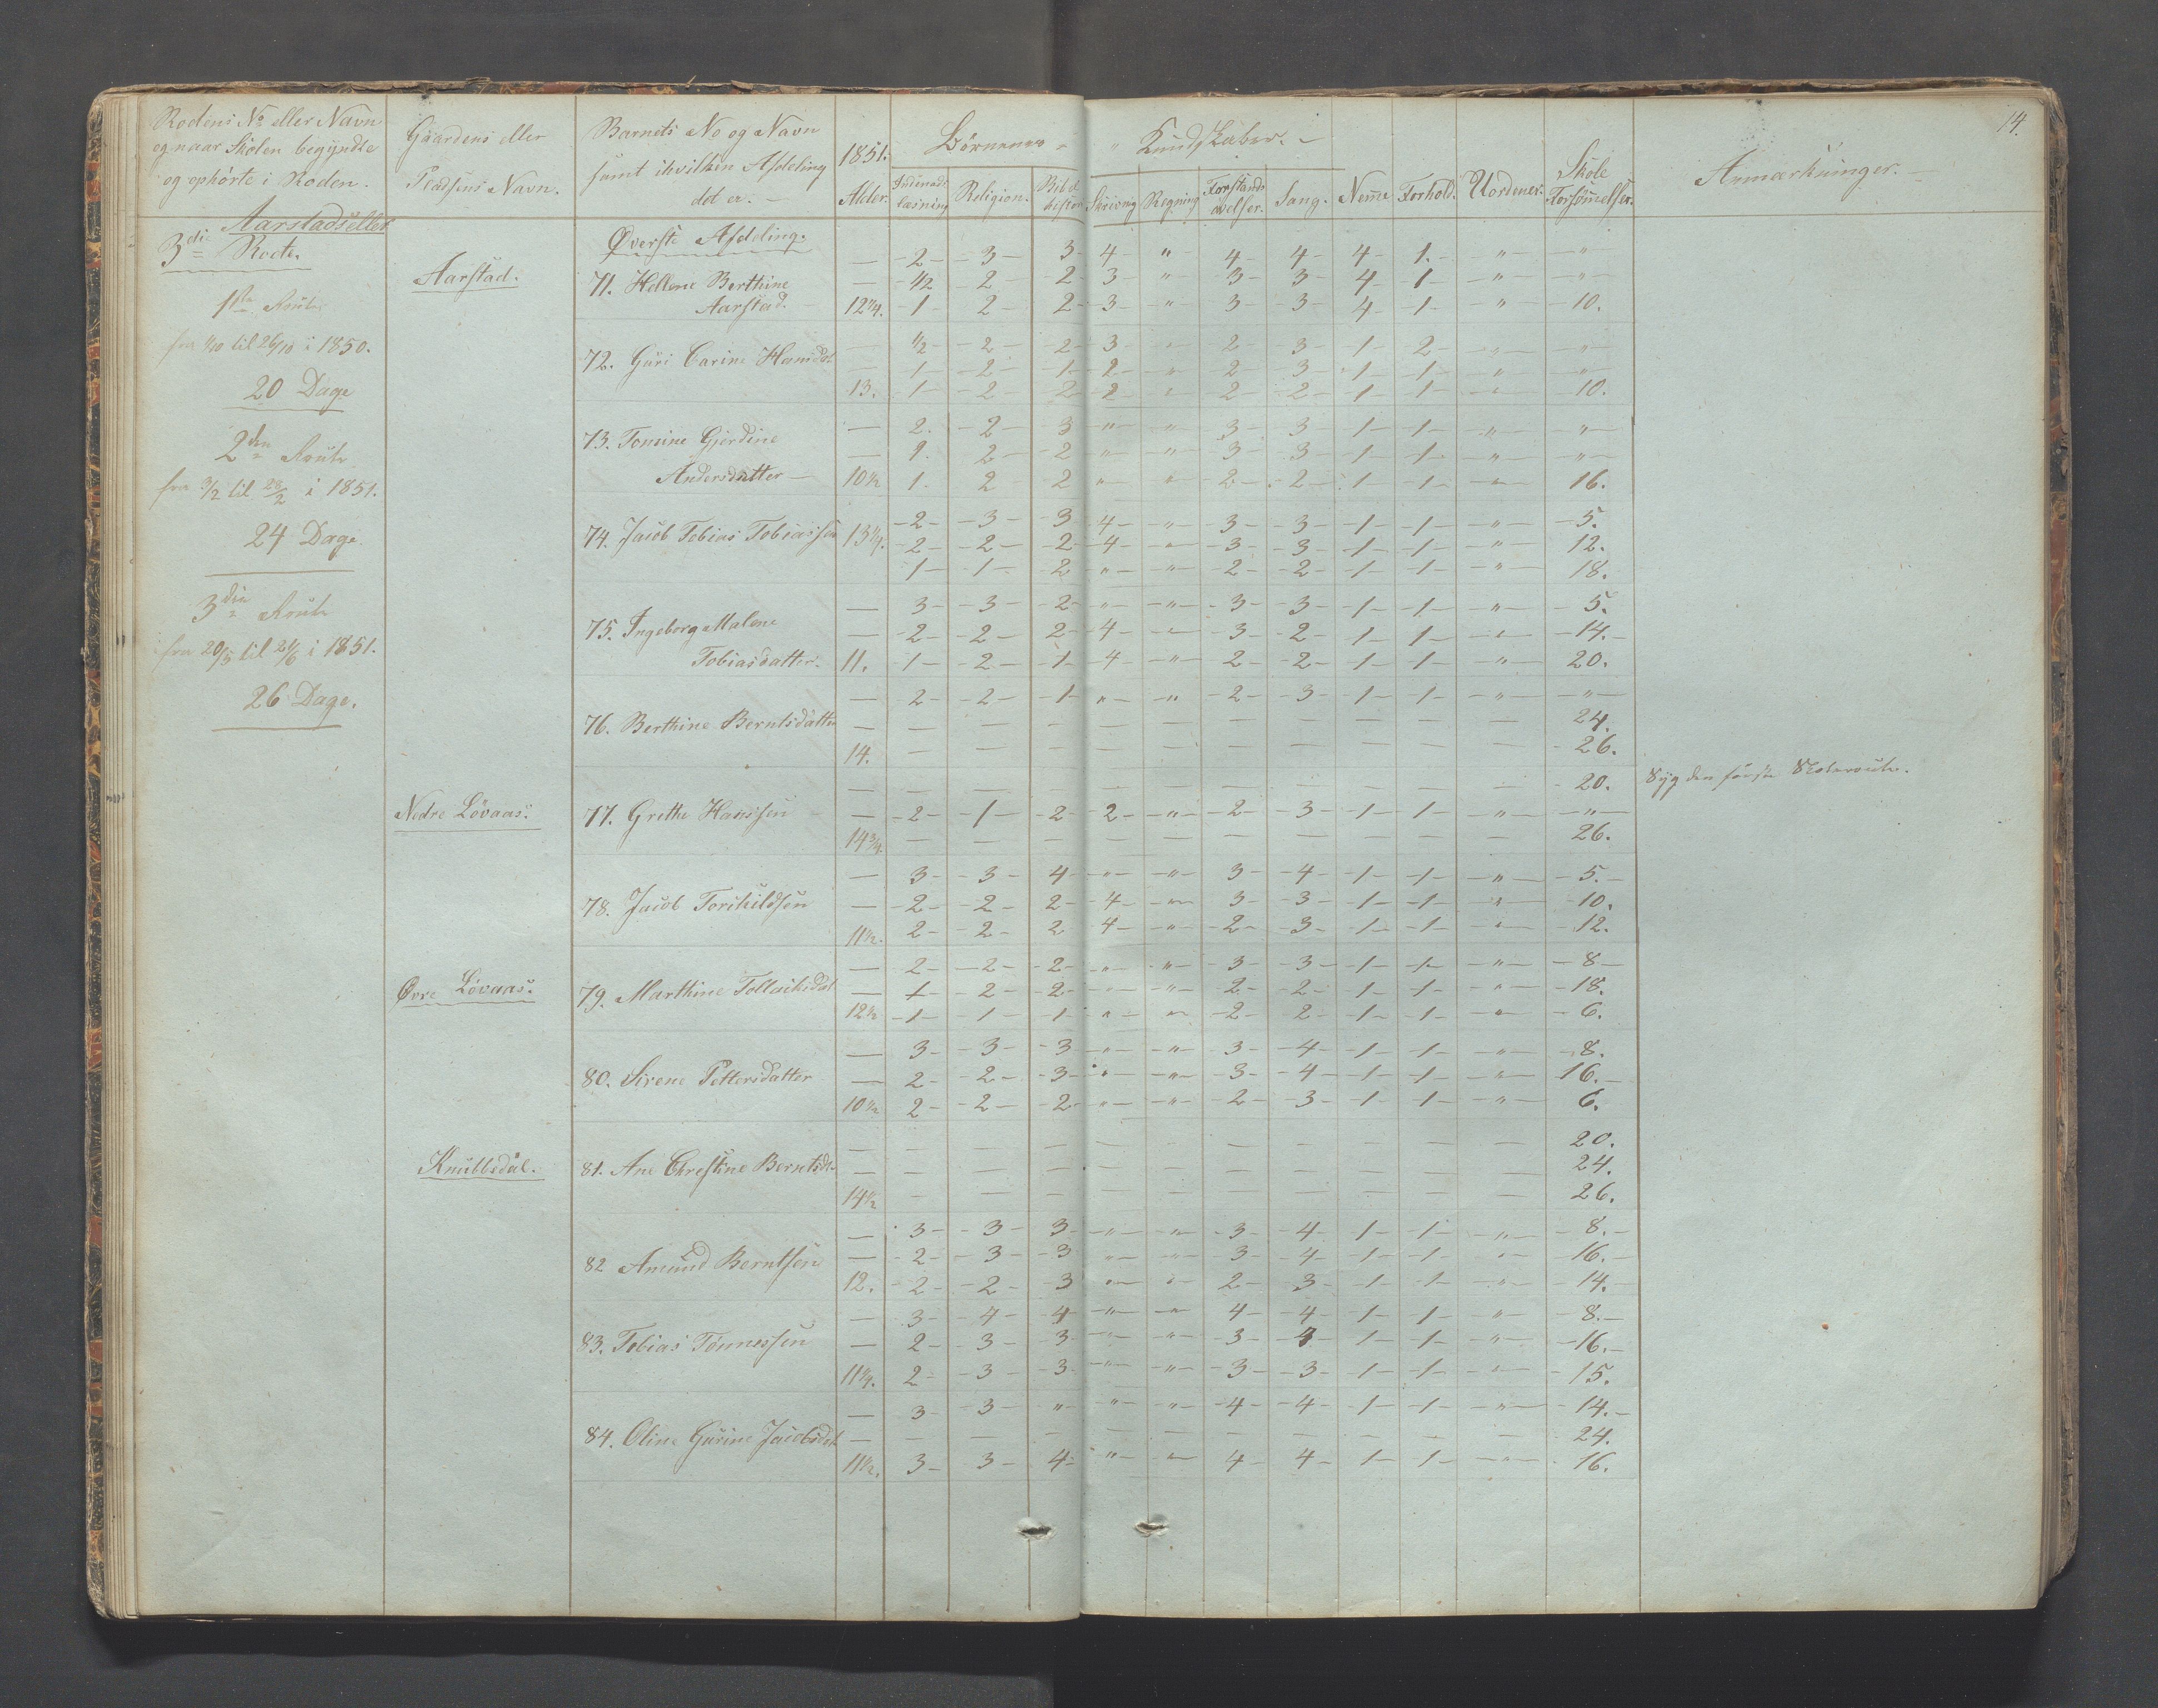 14.
Rodens No eller Navn
og naar Skolen begyndte
og ophørte i Roden.
Gaardens eller
Pladsens Navn.
Barnets No og Navn
samt ihvilken Afdeling
det er. –
1851.
Alder.
Børnenes – " Kundskaber. –
Indenads
læsning
Religion.
Bibel
histor
Skrivng
Regning
Forstands
øvelser.
Sang.
Nemme
Forhold.
Uordener.
Skole
Forsømmelser.
Anmærkninger.
Aarstads eller
3die Rode.
1ste Route
fra 4/10 til 26/10 i 1850.
20 Dage
2den Route
fra 3/2 til 28/2 i 1851.
24 Dage.
3die Route
fra 20/5 til 21/6 i 1851.
26 Dage.
Øverste Afdeling.
Aarstad.
— 2 – 3 – 3 – 4 – " 4 – 4 – 4 – 1. – " – "
71. Hellene Berthine — 1/2 – 2 – 2 – 3 – " 3 – 3 – 4 – 1 – " – "
Aarstad. 12 3/4. 1 – 2 – 2 – 3 – " 3 – 3 – 4 – 1 – " 10.
— 1/2 – 2 – 2 – 3 – " 2 – 3 – 1 – 2 – " – "
72. Guri Carine Hansdat — 1 – 2 – 1 – 2 – " 2 – 3 – 1 – 1 – " – "
13. 1 – 2 – 2 – 2 – " 2 – 2 – 1 – 1 – " 10.
— 2. – 2 – 3 " – " – 3 – 3 – 1 – 1 – " – "
73. Tomine Gjerdine — 1. 2 – 2 " – " – 3 – 3 – 1 – 1 – " – "
Andersdatter — 10 1/2 1. 2 2 " – " – 2 – 2 – 1 – 1 – " 16.
– 2 – 3 – 3 – 4 – " – 3 – 3 – 1 – 1 – " – 5.
74. Jacob Tobias Tobiassen 13 1/4. – 2 – 2 – 2 – 4 – " – 3 – 3 – 1 – 1 – " – 12.
1 – 1 – 2 " – " – 2 – 2 – 1 – 1 – " – 18.
— 3 – 3 – 2 – " – " – 3 – 3 – 1 – 1 – " – 5.
75. Ingeborg Malene — 2 – 2 – 2 – 4 – " – 3 – 2 – 1 – 1 – " – 14.
Tobiasdatter. 11. 1 – 2 – 1 – 4 – " – 2 – 2 – 1 – 1 – " 20.
— 2 – 2 – 1 – " – " – 2 – 3 – 1 – 1 – " – "
76. Berthine Berntsdatter — — — — — — — — — — — 24.
14. — — — — — — — — — — 26.
— — — — — — — — — — — 20. Syg den første Skoleroute.
Nedre Løvaas. 77. Grethe Hanssen — 2 – 1 – 2 – 2 – " – 2 – 3 – 1 – 1 – " – "
14 3/4. — — — — — — — — — — 26.
— 3 – 3 – 4 – " – " 3 – 4 – 1 – 1 – " – 5.
78. Jacob Torkildsen — 2 – 2 – 2 – 4 – " 3 – 3 – 1 – 1 – " 10.
11 1/2. 2 – 2 – 2 4 – " – 2 – 3 – 1 – 1 – " – 12.
— 2 – 2 – 2 – " – " – 3 – 3 – 1 – 1 – " – 8 –
Øvre Løvaas. 79. Marthine Tollachsdat — 1 – 2 – 2 – " – " 2 – 2 – 1 – 1 – " – 18.
12 1/2 – 1 – 1 – 1 – " – " – 2 – 2 – 1 – 1 – " – 6.
— 3 – 3 – 3 – " – " 3 – 4 – 1 – 1 – " – 8.
80. Sirene Pettersdatter — 2 – 2 – 3 – " – " – 3 – 4 – 1 – 1 – " 16.
10 1/2 2 – 2 – 2 – " – " – 2 – 3 – 1 – 1 – " – 6.
— — — — — — — — — — — 20.
Knubbedal. 81. Ane Chrestine Berntsda — — — — — — — — — — — 24.
14 1/2 — — — — — — — — — — 26.
— 3 – 3 – 3 – " – " – 3 – 4 – 1 – 1 – " – 8.
82 Amund Berntsen — 2 – 3 – 3 " – " – 3 – 4 – 1 – 1 – " – 16.
12. – 2 – 2 – 3 " – " – 2 – 3 – 1 – 1 – " – 14.
— 3 – 4 – 4 – " – " 4 – 4 – 1 – 1 – " – 8.
83. Tobias Tønnessen — 2 – 3 – 3 – " – " – 3 – 4 – 1 – 1 – " – 16.
11 3/4. 2 – 3 – 3 – " – " – 3 – 3 – 1 – 1 – " – 15.
— 3 – 3 – " – " – " – 4 – 4 – 1 – 1 – " – 14.
84. Oline Gurine Jacobsdt — — — — — — — — — — — 24.
11 1/2. 3 – 3 – 4 – " – " 4 – 4 – 1 – 1 – " – 16.